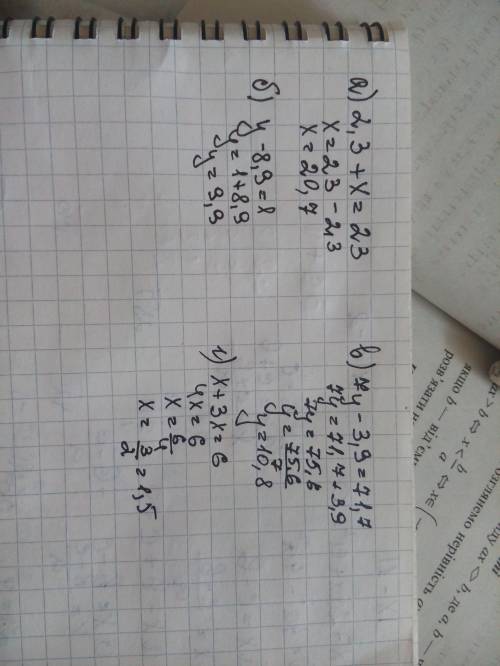 а) 2,3 + x = 23
x = 23 - 2,3
x = 20,7
б) y - 8,9 = 1
y = 1 + 8,9
y = 9,9
в) 7y - 3,9 = 71,7
7y = 71,7 + 3,9
7y = 75,6
y = 75,6/7
y = 10,8
г) x + 3x = 6
4x = 6
x = 6/4
x = 3/2 = 1,5
ax > b ⇔ x < b/a ⇔ x ∈ (–
якщо b — від'єм
розв'язати н
глянемо нерівність a
ду ax <> b, де a, b —